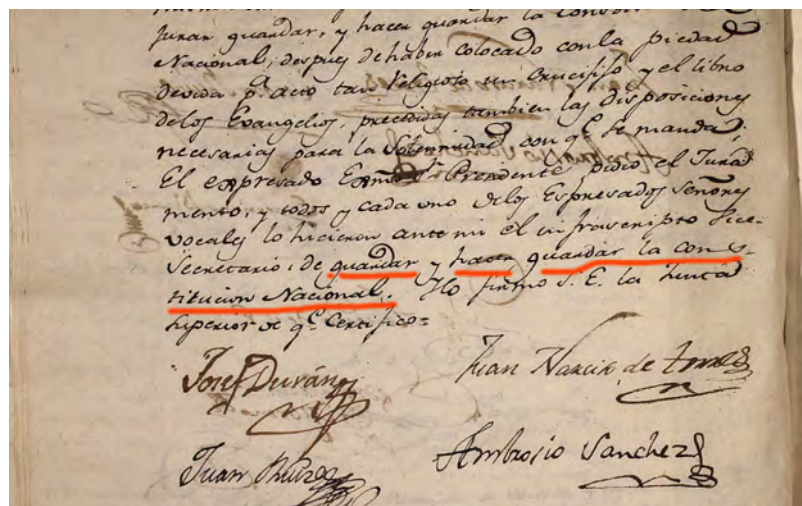 juran guardar, y hacer guardar la
Nacional, despues de haber colocado con la piedad
devida p.ª acto tan Religioso un Crucifijo y el libro
delos Evangelios, precedidas tambien las disposiciones
necesarias para la Solemnidad con q.e se manda;
El expresado Exmõ S.r Presidente pidio el Jura
mento, y todos y cada uno delos Espresados Señores
vocales lo hicieron ante mi el infrascripto Vice-
Secretario, de guardar y hacer guardar la cons-
titucion Nacional. Ylo firmo S. E. la Junta
Superior de q.e Certifico=
Josef Durán Juan Narcis de Torres
Juan Ambrosio Sanchez